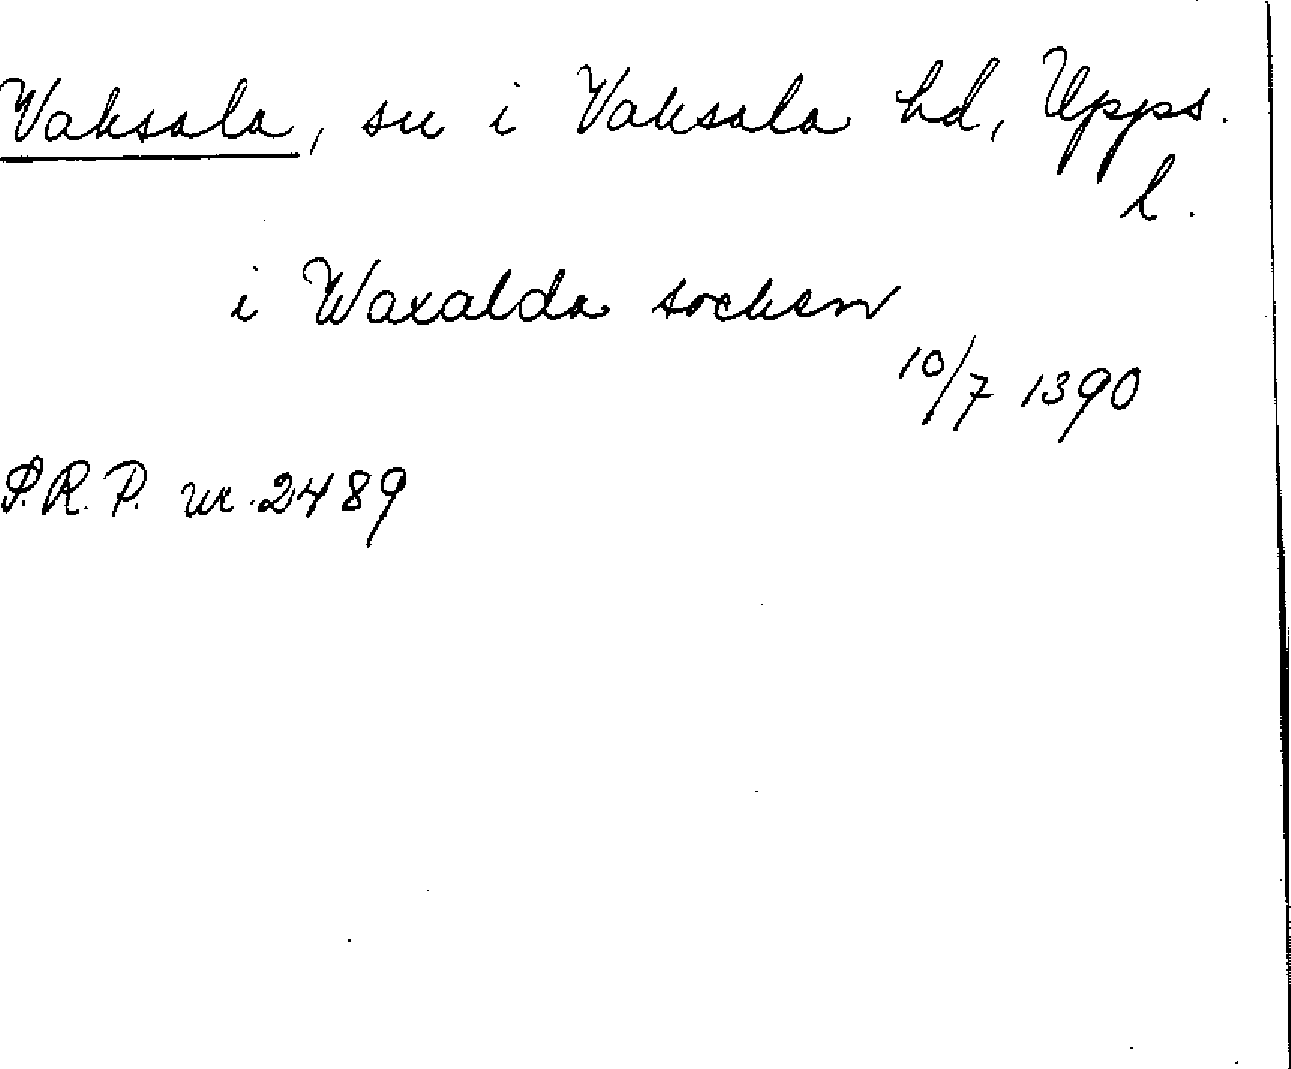 Vaksala, sn i Vaksala hd, Upps.
l.
i Waxalda socken
10/7 1390
S.R.P. nr. 2489